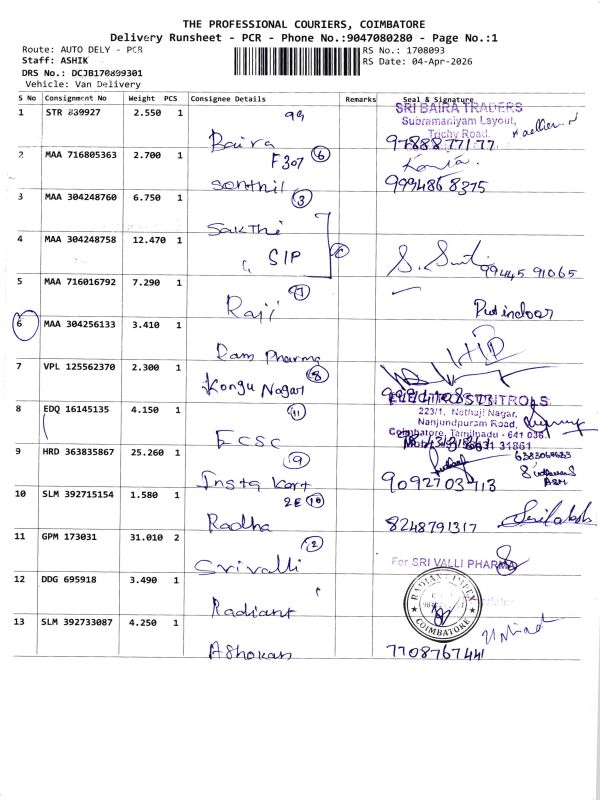 THE PROFESSIONAL COURIERS, COIMBATORE
Delivery Runsheet - PCR - Phone No.:9047080280 - Page No.:1
Route: AUTO DELY - PCR
RS No.: 1708093
Staff: ASHIK
RS Date: 04-Apr-2026
DRS No.: DCJB170899301
Vehicle: Van Delivery
S No Consignment No Weight PCS Consignee Details Remarks Seal & Signature
1 STR 839927 2.550 1 99
Baira
SRI BAIRA TRADERS
Subramaniyam Layout,
Trichy Road.
97888 77177
2 MAA 716805363 2.700 1 F307 6
Sonthil
9994868375
3 MAA 304248760 6.750 1 3
Sakthi
4 MAA 304248758 12.470 1
SIP
99445 91065
5 MAA 716016792 7.290 1
Raji
Putindoor
6 MAA 304256133 3.410 1
Ram Pharma
7 VPL 125562370 2.300 1 8
Kongu Nagar
8 EDQ 16145135 4.150 1 11
ECSC
223/1, Nethaji Nagar,
Nanjundpuram Road,
Coimbatore, Tamilnadu - 641 036.
9 HRD 363835867 25.260 1 9
Insta kart
9092703713
10 SLM 392715154 1.580 1 2E 10
Radha
8248791317
11 GPM 173031 31.010 2 2
Srivalli
For SRI VALLI PHARMA
12 DDG 695918 3.490 1
Radiant
RADIANT IMPEX
COIMBATORE
13 SLM 392733087 4.250 1
Ashokan
7708767441